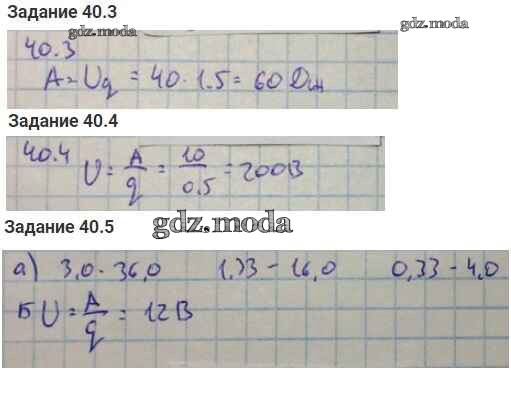 Задание 40.3
gdz.moda
gdz.moda
40.3
A = Uq = 40 · 1.5 = 60 Дж
Задание 40.4
40.4
U = A/q = 10/0.5 = 200В
Задание 40.5
gdz.moda
а) 3,0 - 36,0 1,33 - 16,0 0,33 - 4,0
Б U = A/q = 12 В